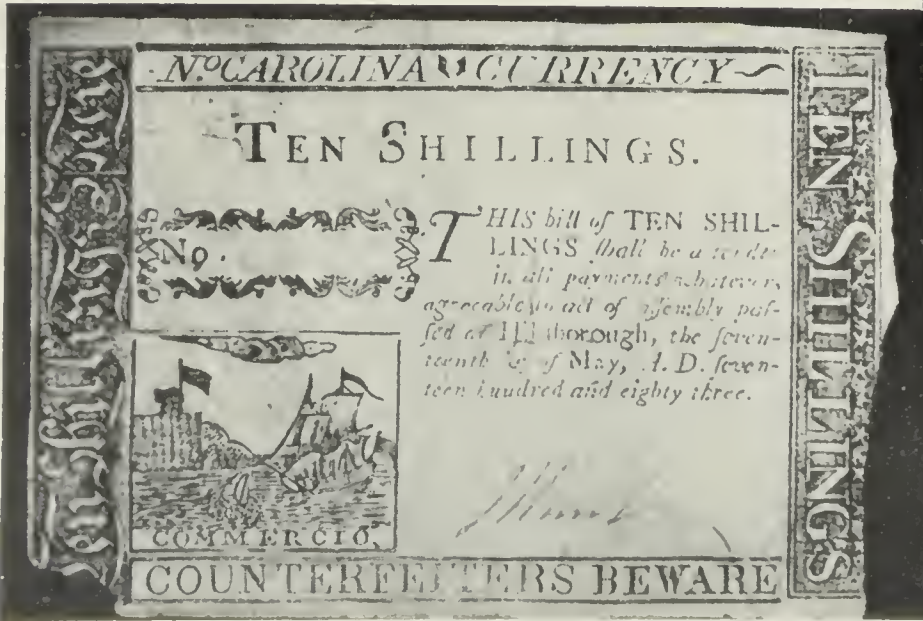 No CAROLINA CURRENCY
TEN SHILLINGS.
No.
THIS bill of TEN SHIL-
LINGS ſhall be a tender
in all payments whatever,
agreeable to act of aſſembly paſ-
ſed at Hillſborough, the ſeven-
teenth day of May, A. D. ſeven-
teen hundred and eighty three.
COMMERCIO.
COUNTERFEITERS BEWARE
TEN SHILLINGS